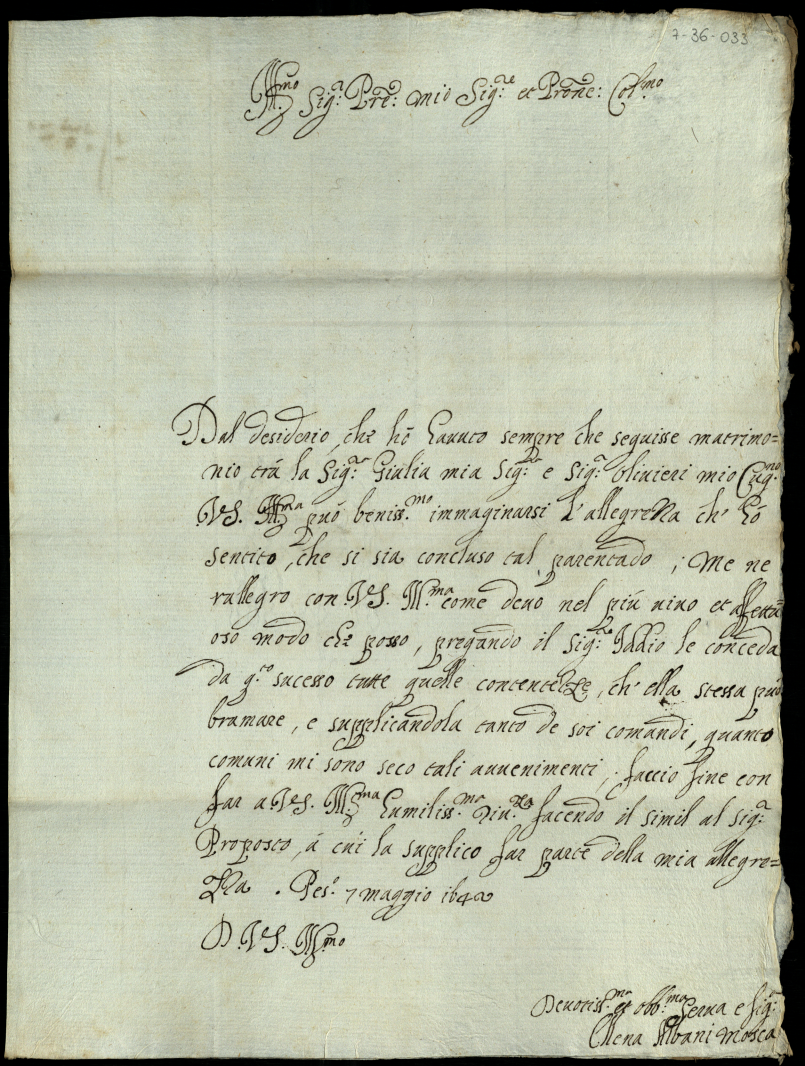 7-36-033
Ill.mo Sig.r P̃re: mio Sig.re et Prõne: Col.mo
Dal desiderio, che hò hauuto sempre che seguisse matrimo=
nio trà la Sig.ra Giulia mia Sig.ra e Sig.r Oliuieri mio Cug.no
V.S. Ill.ma può beniss.mo immaginarsi l'allegrezza ch'hò
sentito, che si sia concluso tal parentado; Me ne
rallegro con V.S. Ill.ma come deuo nel più uiuo et affettu=
oso modo che posso, pregando il Sig.re Iddio le conceda
da q.to sucesso tutte quelle contentezze, ch'ella stessa può
bramare, e supplicandola tanto de soi comandi, quanto
comuni mi sono seco tali auuenimenti; faccio fine con
far a V.S. Ill.ma humiliss.ma riu.za facendo il simil al Sig.r
Proposto, à cui la supplico far parte della mia allegre=
zza. Pes.o 7 maggio 1642
D V.S. Ill.mo
Deuotiss.ma et obb.ma Serua e
Elena Albani Mosca